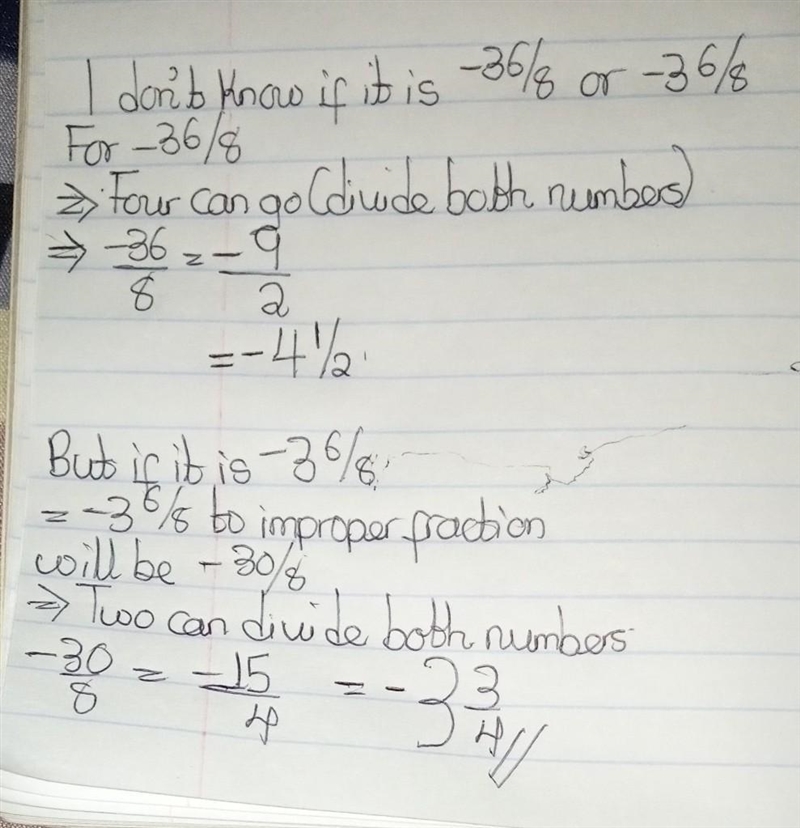 I don't know if it is -36/8 or -3 6/8
For -36/8
⇒ Four can go (divide both numbers)
⇒ -36/8 = -9/2
= -4 1/2
But if it is -3 6/8
= -3 6/8 to improper fraction
will be -30/8
⇒ Two can divide both numbers
-30/8 = -15/4 = -3 3/4 //